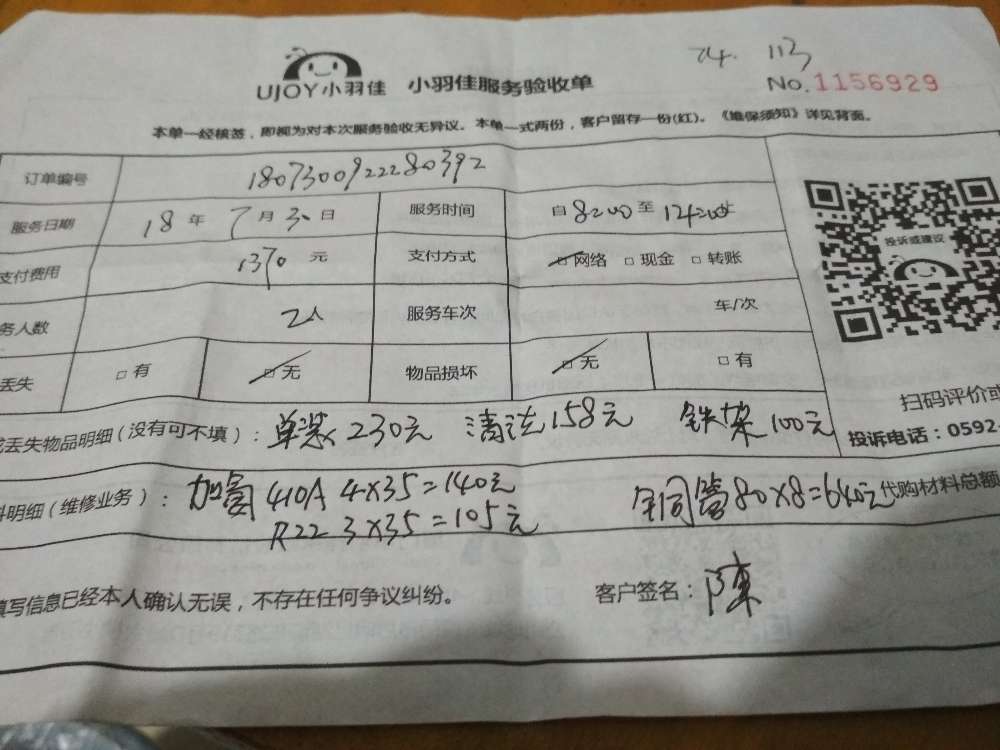 24. 113
UJOY小羽佳 小羽佳服务验收单 No.1156929
本单一经核签，即视为对本次服务验收无异议。本单一式两份，客户留存一份(红)。《维保须知》详见背面。
订单编号 1807300922280392
服务日期 18年7月30日 服务时间 自8:00至12:00止
支付费用 1370元 支付方式 □网络 □现金 □转账
务人数 2人 服务车次 车/次
丢失 □有 □无 物品损坏 □无 □有
投诉或建议
扫码评价或
投诉电话：0592-
丢失物品明细(没有可不填)： 单装230元 清洗158元 铁架100元
料明细(维修业务)： 加氨410A 4×35=140元 铜管80×8=640元 代购材料总额
R22 3×35=105元
填写信息已经本人确认无误，不存在任何争议纠纷。 客户签名：陈